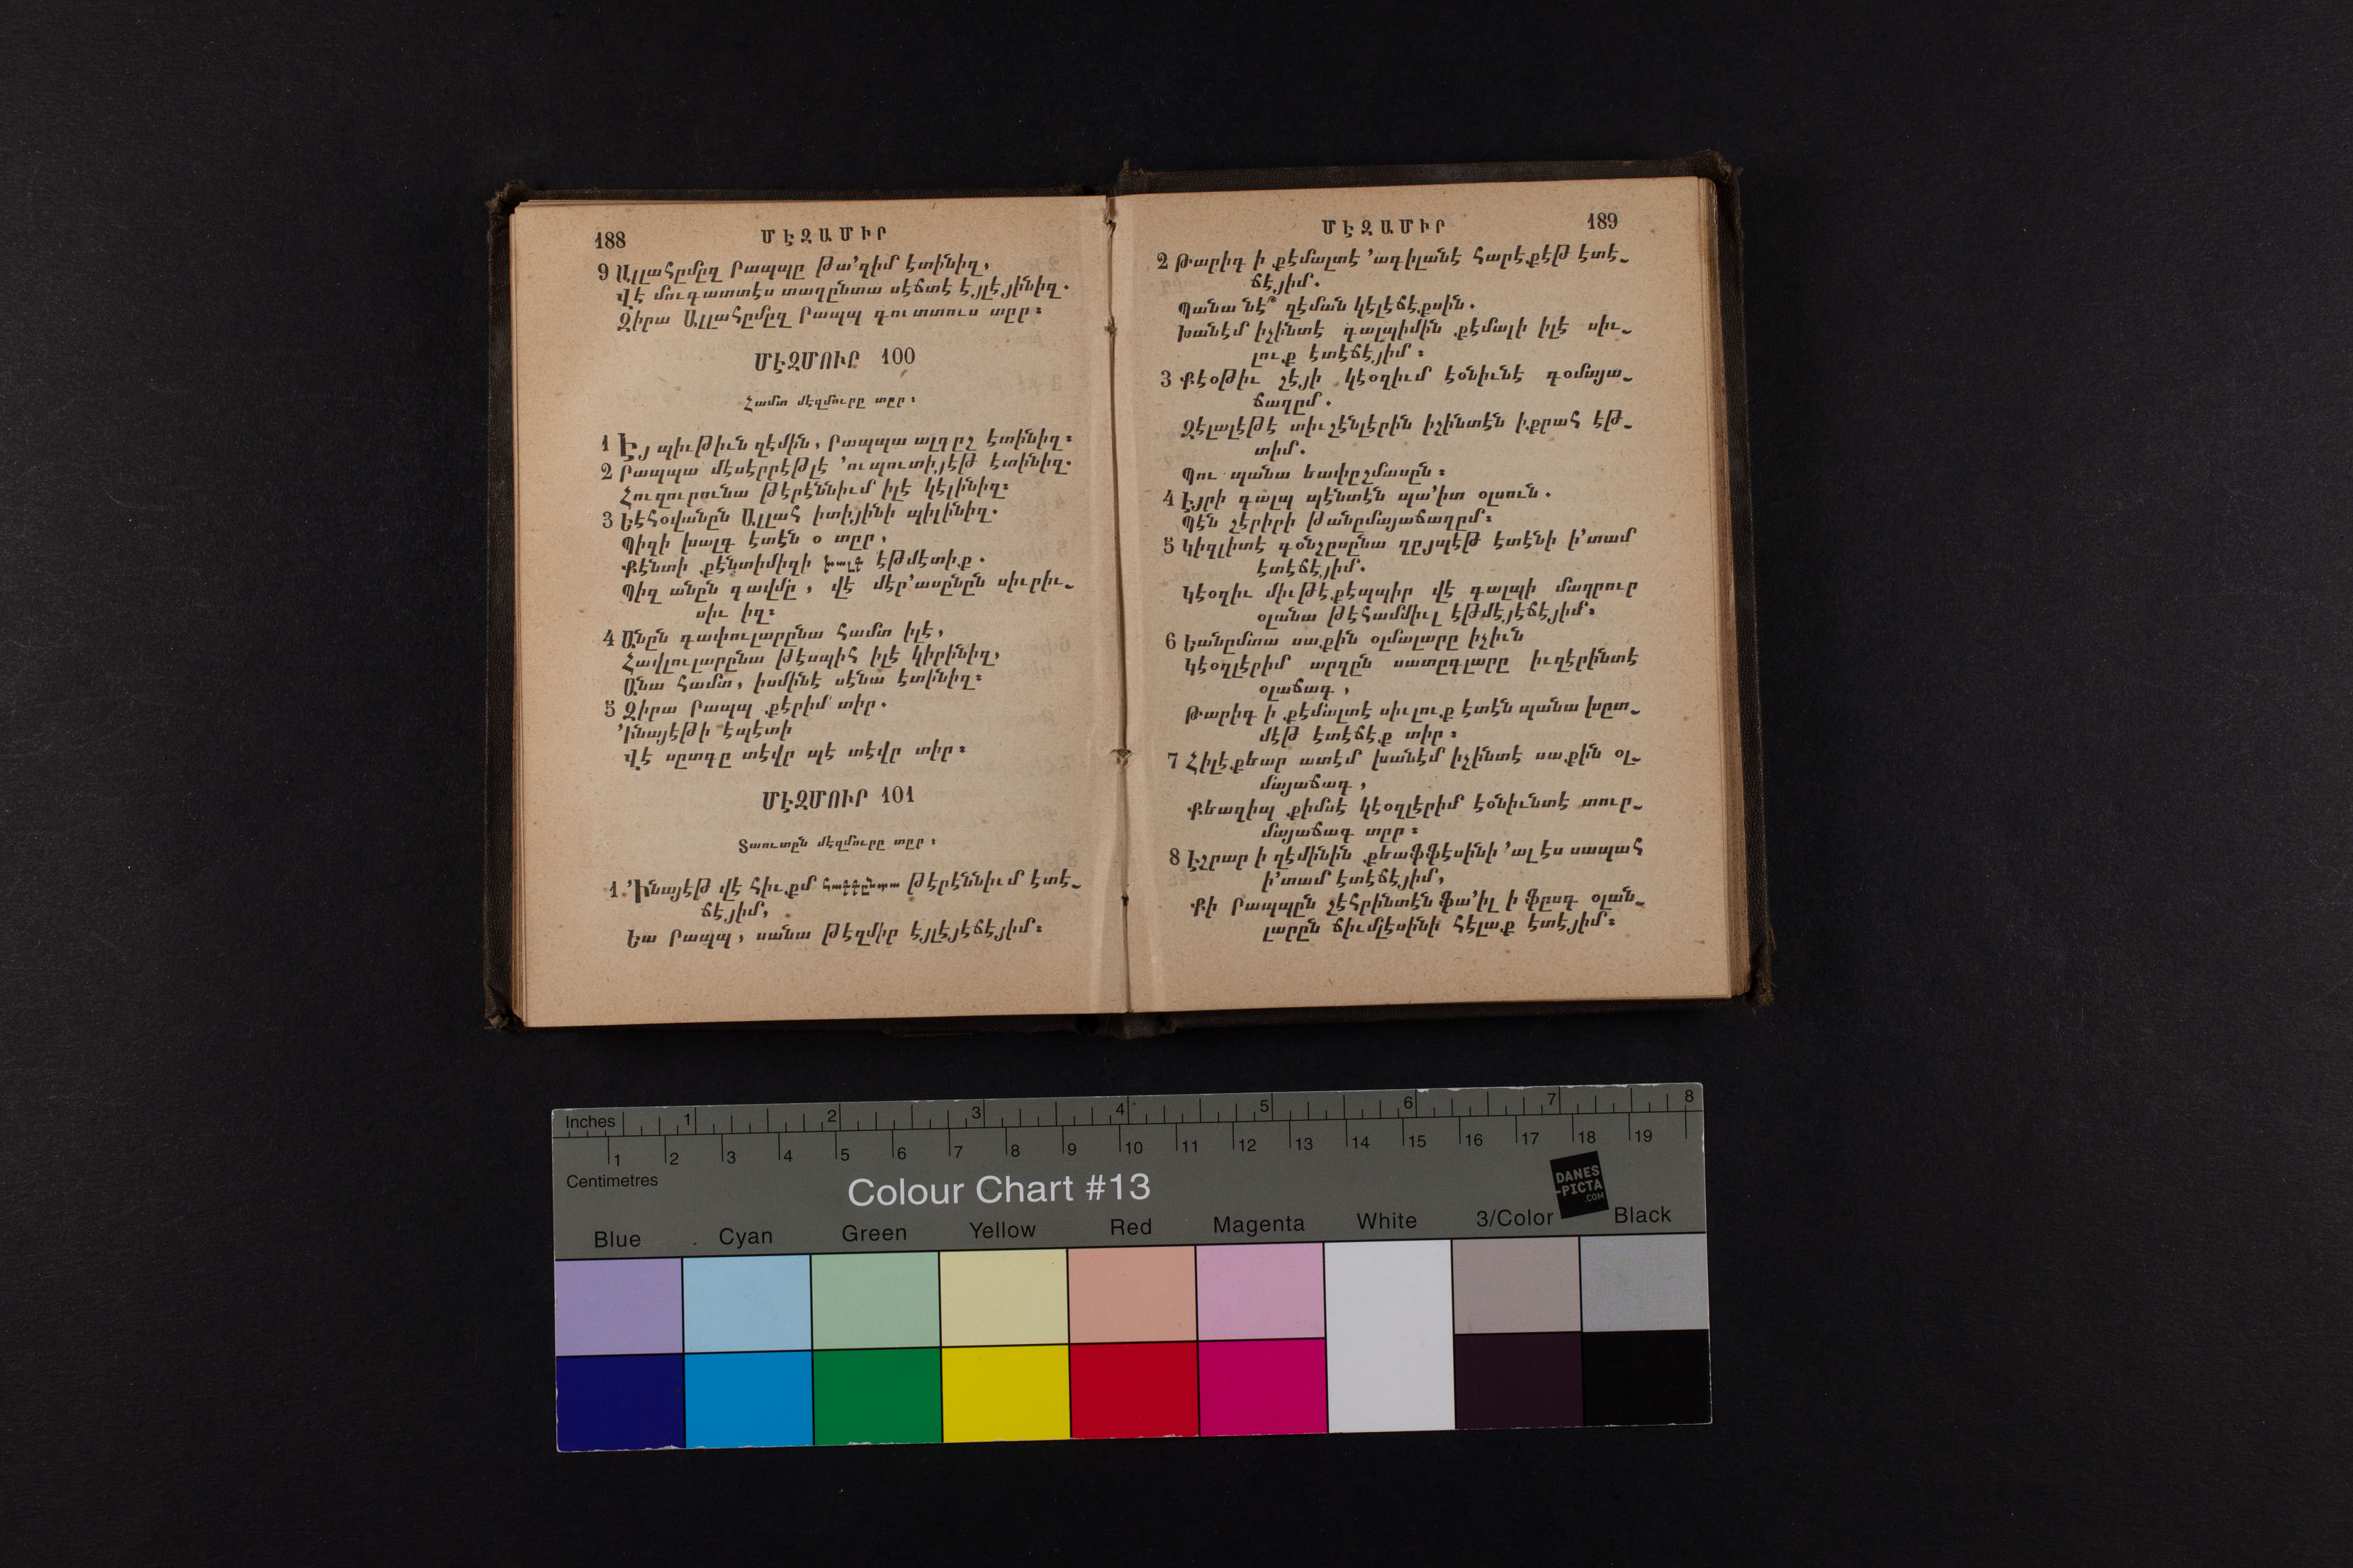 188 ՄԷԶԱՄԻՐ
9 Ալլահըմըզ Րապպը թա՚զիմ էտինիզ,
Վէ մուգատտէս տաղընտա սէճտէ էյլէյինիզ.
Զիրա Ալլահըմըզ Րապպ գուտտուս տըր։
ՄԷԶՄՈՒՐ 100
Համտ մէզմուրը տըր։
1 Էյ պիւթիւն զէմին, Րապպա ալգըշ էտինիզ։
2 Րապպա մէսէրրէթլէ ՚ուպուտիյէթ էտինիզ.
Հուզուրունա թէրէննիւմ իլէ կէլինիզ։
3 Եէհօվանըն Ալլահ իտիյինի պիլինիզ.
Պիզի խալգ էտէն օ տըր,
Քէնտի քէնտիմիզի խալգ էթմէտիք.
Պիզ անըն գավմը, վէ մէր՚ասընըն սիւրիւ֊
սիւ իզ։
4 Անըն գափուլարընա համտ իլէ,
Հավլուլարընա թէսպիհ իլէ կիրինիզ,
Անա համտ, իսմինէ սէնա էտինիզ։
5 Զիրա Րապպ քէրիմ տիր.
՚Ինայէթի էպէտի
Վէ սըտգը տէվր պէ տէվր տիր։
ՄԷԶՄՈՒՐ 101
Տաուտըն մէզմուրը տըր։
1 ՚Ինայէթ վէ հիւքմ հագգընտա թէրէննիւմ էտէ֊
ճէյիմ,
Եա Րապպ, սանա թէզմիր էյլէյէճէյիմ։
ՄԷԶԱՄԻՐ 189
2 Թարիգ ի քէմալտէ ՚ագիլանէ հարէքէթ էտէ֊
ճէյիմ.
Պանա նէ՞ զէման կէլէճէքսին.
Խանէմ իչինտէ գալպիմին քէմալի իլէ սիւ֊
լուք էտէճէյիմ։
3 Քէօթիւ շէյի կէօզիւմ էօնիւնէ գօմայա֊
ճաղըմ.
Զէլալէթէ տիւշէնլէրին իշինտէն իքրահ էթ֊
տիմ.
Պու պանա եափըշմասըն։
4 Էյրի գալպ պէնտէն պա՚իտ օլսուն.
Պէն շէրիրի թանըմայաճաղըմ։
5 Կիզլիտէ գօնշըսընա ղըյպէթ էտէնի ի՚տամ
էտէճէյիմ.
Կէօզիւ միւթէքէպպիր վէ գալպի մաղրուր
օլանա թէհամմիւլ էթմէյէճէյիմ։
6 Եանըմտա սաքին օլմալարը իչիւն
Կէօզլէրիմ արզըն սատըգլարը իւզէրինտէ
օլաճագ,
Թարիգ ի քէմալտէ սիւլուք էտէն պանա խըտ֊
մէթ էտէճէք տիր։
7 Հիլէքեար ատէմ խանէմ իչինտէ սաքին օլ֊
մայաճագ,
Քեազիպ քիմսէ կէօզլէրիմ էօնիւնտէ տուր֊
մայաճագ տըր։
8 Էշրար ի զէմինին քեաֆֆէսինի ՚ալէս սապահ
ի՚տամ էտէճէյիմ,
Քի Րապպըն շէհրինտէն ֆա՚իլ ի ֆըսգ օլան֊
լարըն ճիւմլէսինի հէլաք էտէյիմ։
Inches 1 2 3 4 5 6 7 8
1 2 3 4 5 6 7 8 9 10 11 12 13 14 15 16 17 18 19
Centimetres
Colour Chart #13
DANES
-PICTA
.COM
Blue Cyan Green Yellow Red Magenta White 3/Color Black